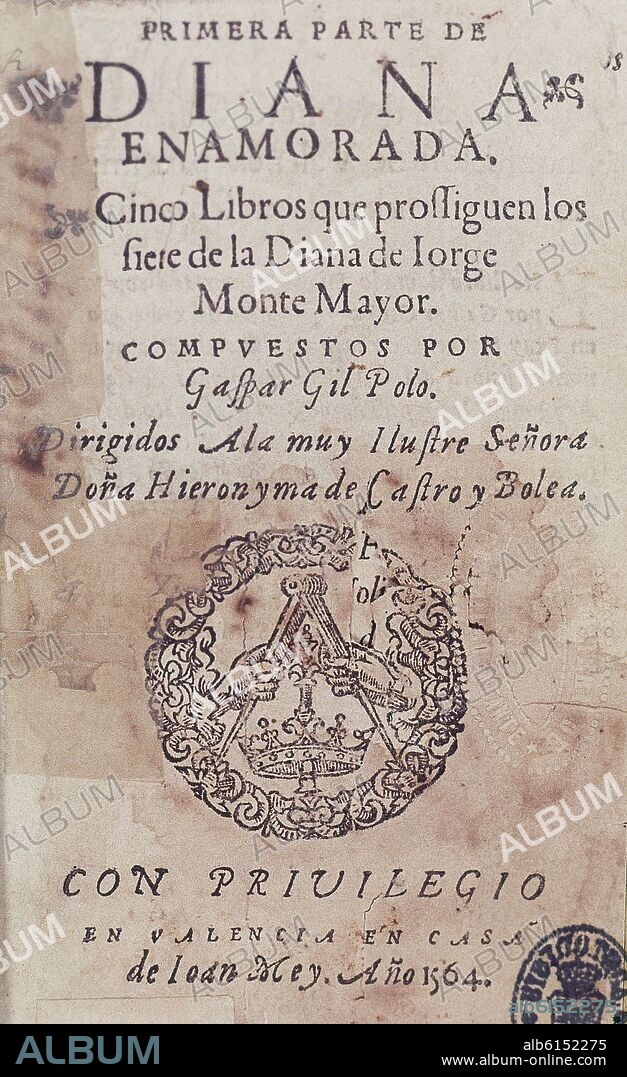 PRIMERA PARTE DE
DIANA
ENAMORADA.
Cinco Libros que prossiguen los
siete de la Diana de Iorge
Monte Mayor.
COMPVESTOS POR
Gaspar Gil Polo.
Dirigidos Ala muy Ilustre Señora
Doña Hieronyma de Castro y Bolea.
CON PRIUILEGIO
EN VALENCIA EN CASA
de Ioan Mey. Año 1564.
alb6152275
ALBUM
alb6152275
www.album-online.com